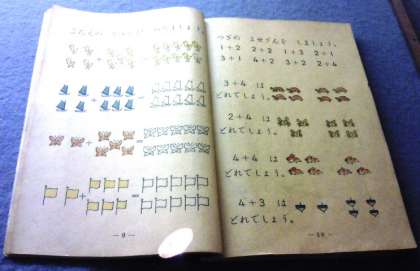 つぎの よせざんを しましょう。
1+2 2+2 1+3 2+1
3+1 4+2 3+2 2+4
3+4 は
どれでしょう。
2+4 は
どれでしょう。
4+4 は
どれでしょう。
4+3 は
どれでしょう。